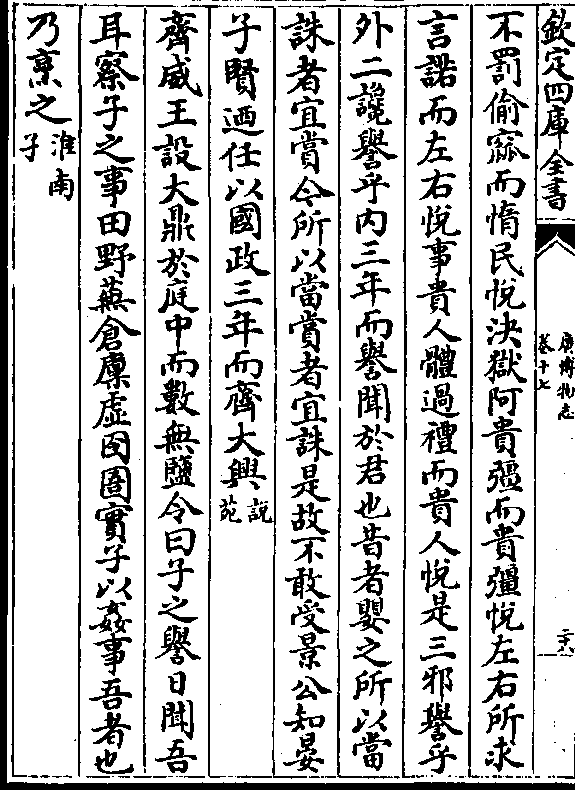 欽定四庫全書
廣博物志
卷十七
二十八
不罰偷窳而惰民悅決獄阿貴彊而貴彊悅左右所求
言諾而左右悅事貴人體過禮而貴人悅是三邪譽乎
外二讒譽乎内三年而譽聞於君也昔者嬰之所以當
誅者宜賞今所以當賞者宜誅是故不敢受景公知晏
子賢迺任以國政三年而齊大興說苑
齊威王設大鼎於庭中而數無鹽令曰子之譽日聞吾
耳察子之事田野蕪倉廩虛囹圄實子以姦事吾者也
乃烹之淮南子